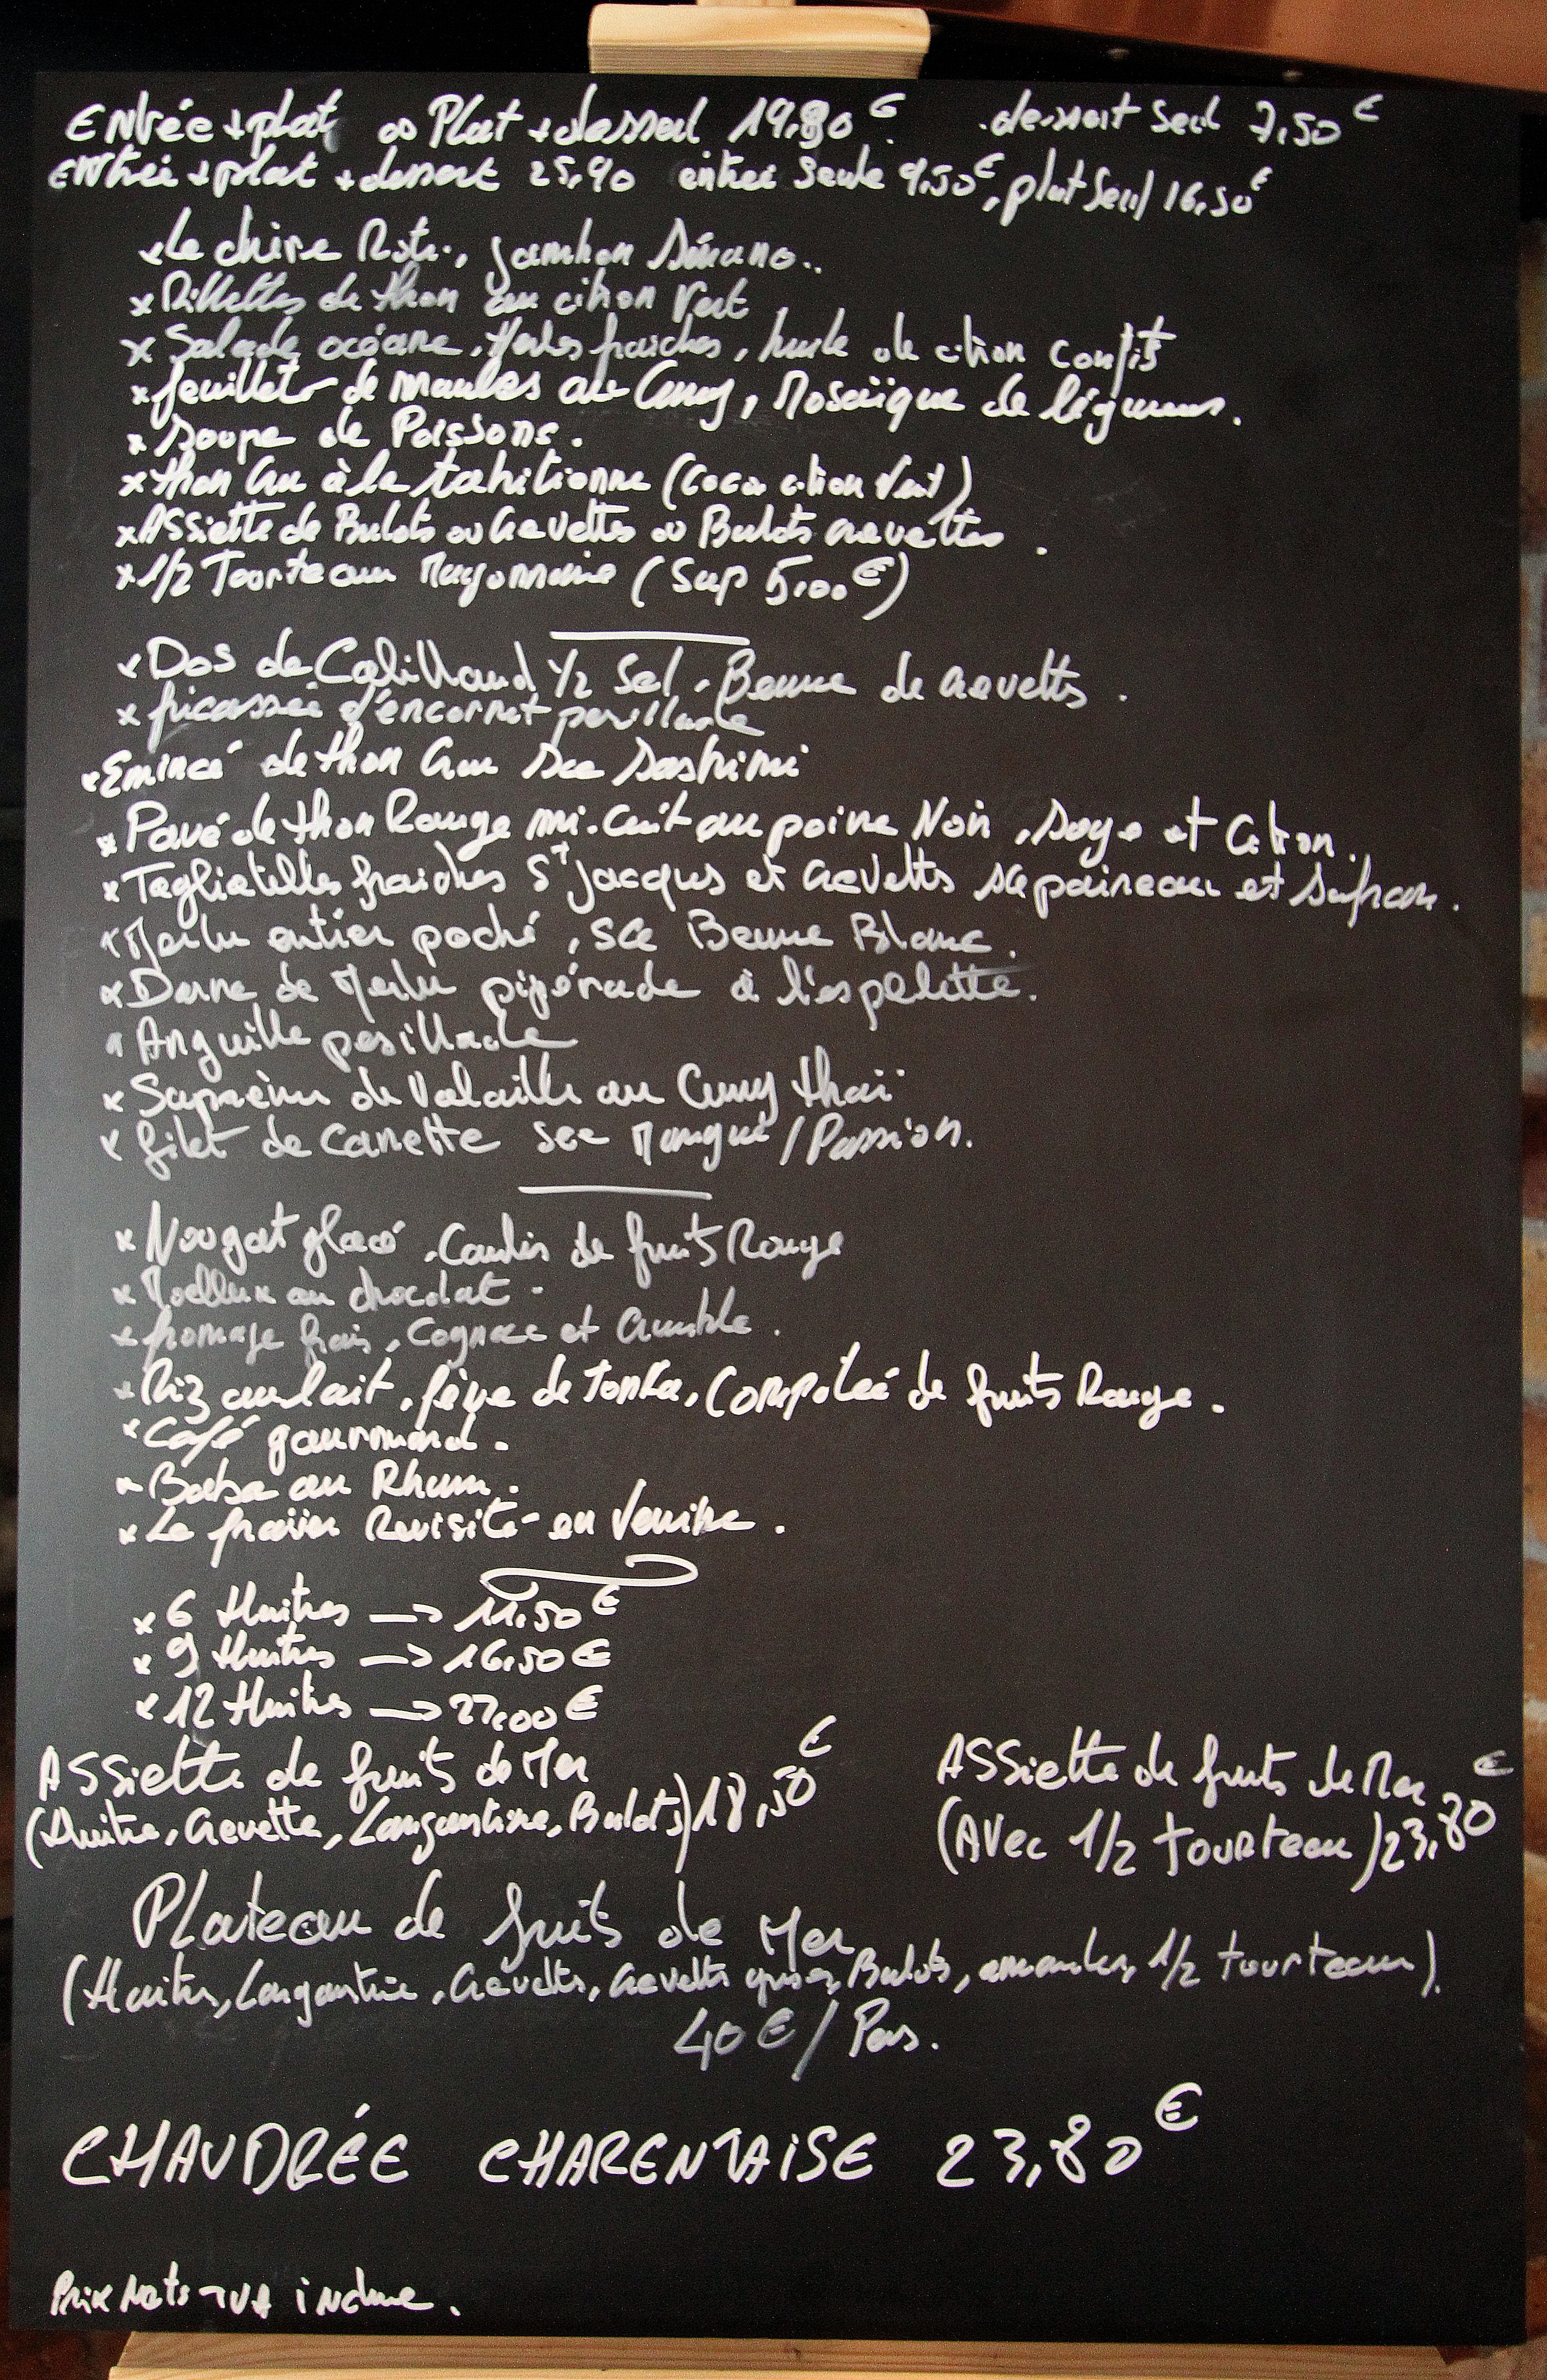 Entrée + plat ou Plat + dessert 19.80€. dessert seul 7,50€
Entrée + plat + dessert 25,90 entrée seule 9,50€, plat seul 16,50€
x Le chèvre Roti., jambon Sérano..
x Rillettes de thon au citron Vert
x Salade océane, Herbes fraiches, huile de citron confit
x feuilleté de moules au Curry, Mosaïque de légumes.
x Soupe de Poissons.
x thon cru à la tahitienne (Coco citron Vert)
x ASSiette de Bulots ou crevettes ou Bulots crevettes.
x 1/2 Tourteau Mayonnaise (Sup 5,00€)
x Dos de Cabillaud 1/2 Sel, Beurre de crevettes.
x fricassée d'encornet persillade
x Emincé de thon cru sce sashimi
x Pavé de thon Rouge mi-cuit au poivre Noir, soja et Citron.
x Tagliatelles fraiches St Jacques et crevettes sce poireau et safran.
x Merlu entier poché, sce Beurre Blanc.
x Darne de Merlu pipérade à l'espelette.
x Anguille persillade
x Suprême de Volaille au Curry thaï
x filet de canette sce Mangue / Passion.
x Nougat glacé, Coulis de fruits Rouge
x Moelleux au chocolat.
x fromage frais, Cognac et crumble.
x Riz au lait, fève de Tonka, Compotée de fruits Rouge.
x Café gourmand.
x Baba au Rhum.
x Le fraisier Revisité en Verrine.
x 6 Huitres → 11,50€
x 9 Huitres → 16,50€
x 12 Huitres → 22,00€
ASSiette de fruits de Mer
(Huitre, Crevette, Langoustine, Bulots) 18,50€
ASSiette de fruits de Mer
(AVec 1/2 tourteau) 23,80€
Plateau de fruits de Mer
(Huitres, Langoustine, Crevettes, Crevettes grises, Bulots, amandes, 1/2 tourteau).
40€ / Pers.
CHAUDRÉE CHARENTAISE 23,80€
Prix Nets TVA incluse.